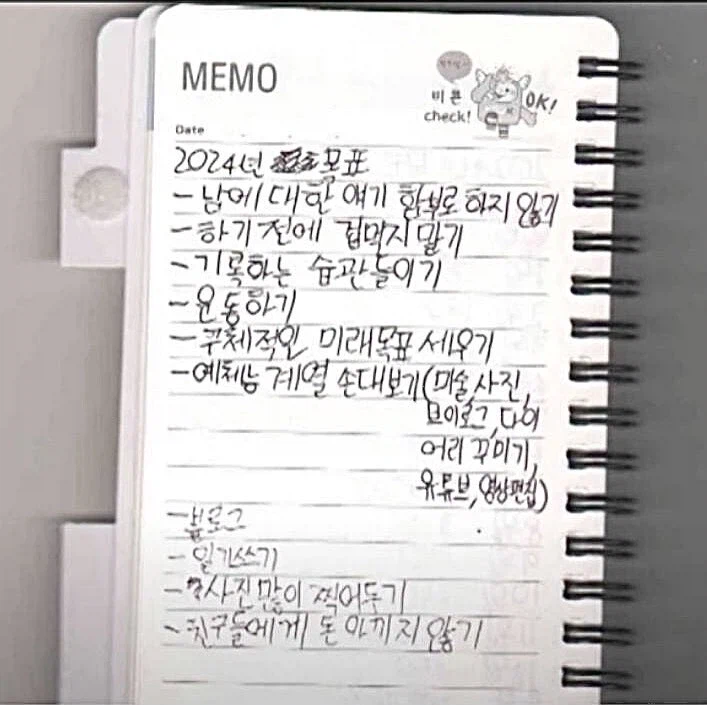 MEMO
비폰
check!
OK!
Date
2024년 목표
- 남에 대한 얘기 함부로 하지 않기
- 하기 전에 겁먹지 말기
- 기록하는 습관들이기
- 운동하기
- 구체적인 미래목표 세우기
- 예체능 계열 손대보기(미술,사진,
브이로그,다이
어리 꾸미기,
유튜브,영상편집)
- 블로그
- 일기쓰기
- 사진많이 찍어두기
- 친구들에게 돈 아끼지 않기